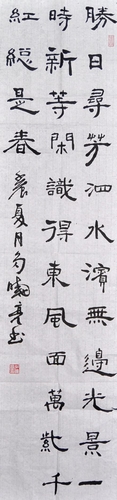 勝日尋芳泗水濱無邊光景一
時新等閑識得東風面萬紫千
紅總是春
夏月
書